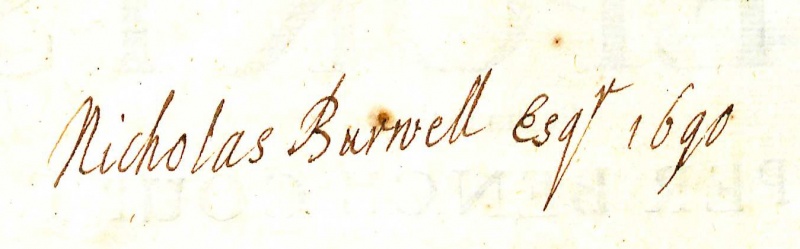 Nicholas Burwell Esqr 1690